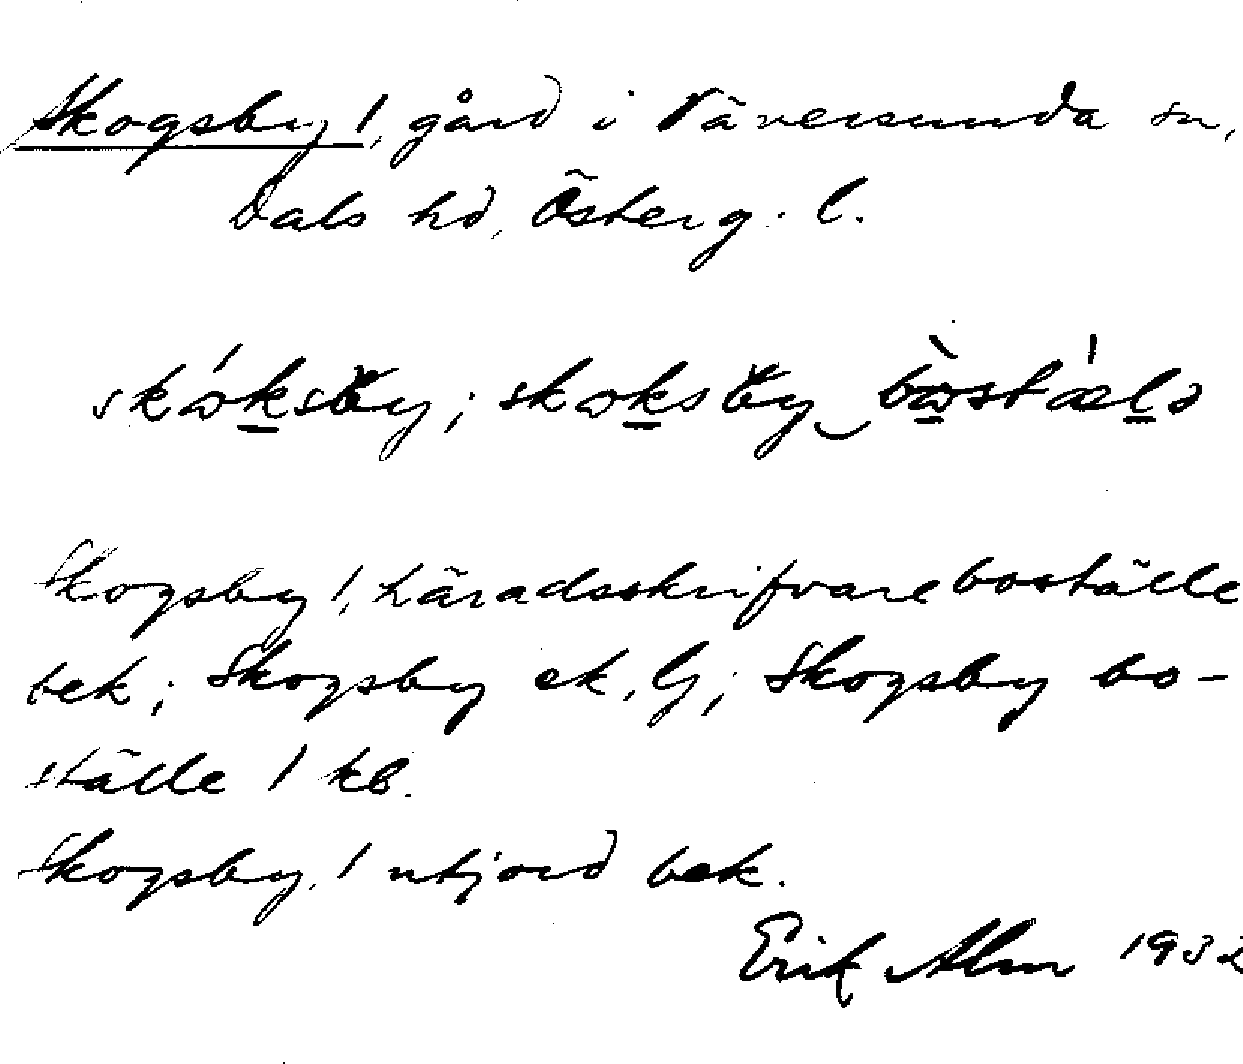 Skogsby 1, gård i Väversunda sn,
Dals hd, Österg. l.
skɷ́ksby; skɷksby‿bɷ̀stæ̍lə
Skogsby 1, häradsskrifvareboställe
bek; Skogsby ek, G; Skogsby bo-
ställe 1 kb.
Skogsby, 1 utjord bek.
Erik Alm 1932